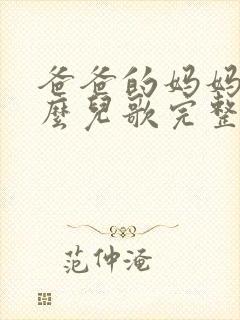 爸爸的妈妈
麽兒歌完整
范仲淹